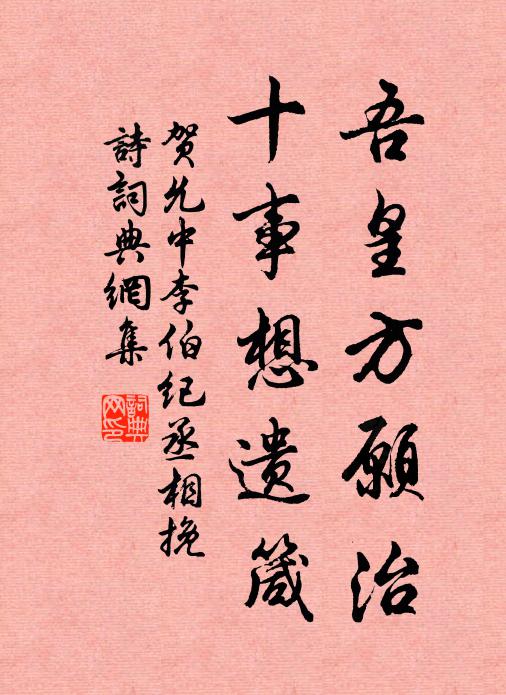 吾皇方願治
十事想遺箴
賀允中李伯紀丞相挽
詩詞典網集
詞典网印